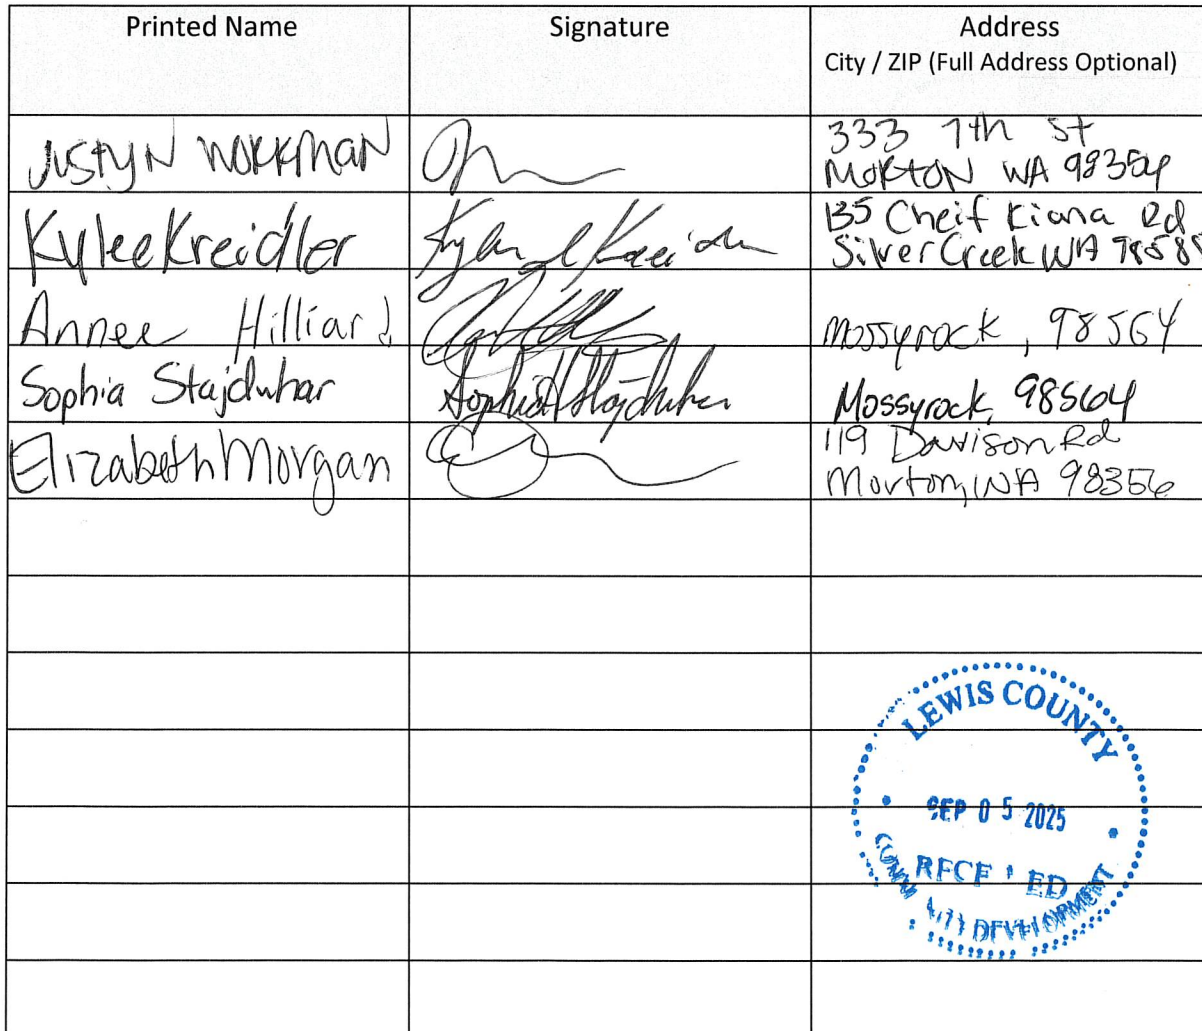 Printed Name Signature Address
City / ZIP (Full Address Optional)
Justyn Workman 333 7th St
Morton WA 98356
Kylee Kreidler 135 Cheif Kiona Rd
Silver Creek WA 98585
Annee Hilliard Mossyrock, 98564
Sophia Stajduhar Sophia Stajduhar Mossyrock, 98564
Elizabeth Morgan 119 Davison Rd
Morton, WA 98356
LEWIS COUNTY
SEP 05 2025
RECE ED
DEVELOPMENT